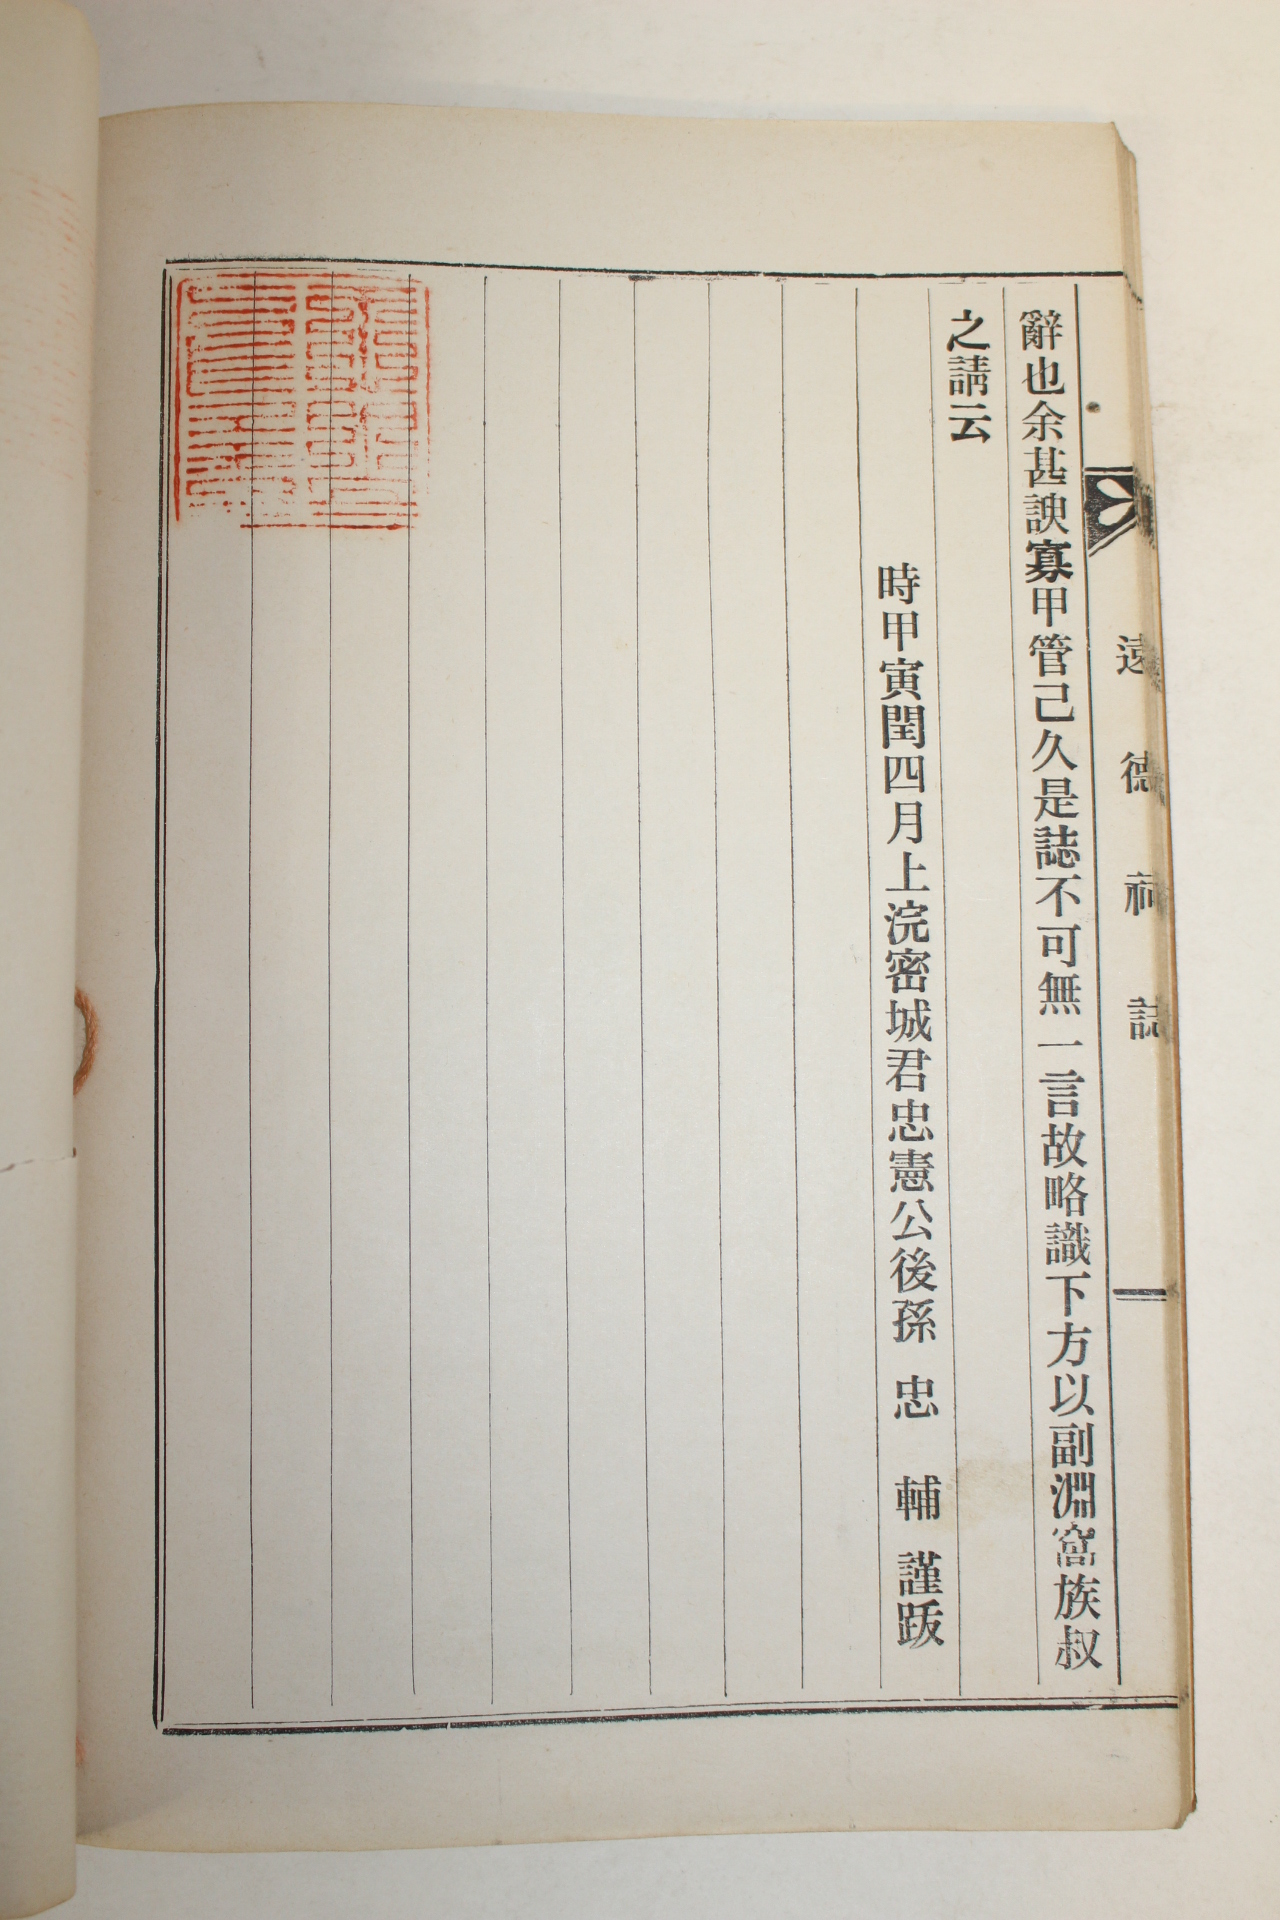 辭也余甚諛寡甲管己久是誌不可無一言故略識下方以副淵窩族叔
之請云
時甲寅閏四月上浣密城君忠憲公後孫 忠 輔 謹跋
遠德祠誌
一